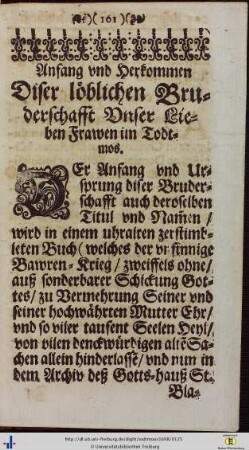 )( 161 )(
Anfang vnd Herkommen
Diser löblichen Bru-
derschafft Vnser Lie-
ben Frawen im Todt-
mos.
DEr Anfang vnd Ur-
sprung diser Bruder-
schafft auch deroselben
Titul vnd Namen /
wird in einem uhralten zerstimb-
leten Buch ( welches der vnsinnige
Bawren-Krieg / zweiffels ohne /
auß sonderbarer Schickung Got-
tes / zu Vermehrung Seiner vnd
seiner hochwährten Mutter Ehr /
vnd so viler tausent Seelen Heyl /
von vilen denckwürdigen alte Sa-
chen allein hinderlasse / vnd nun in
dem Archiv deß Gotts-Hauß St.
Bla-
© Universitätsbibliothek Freiburg